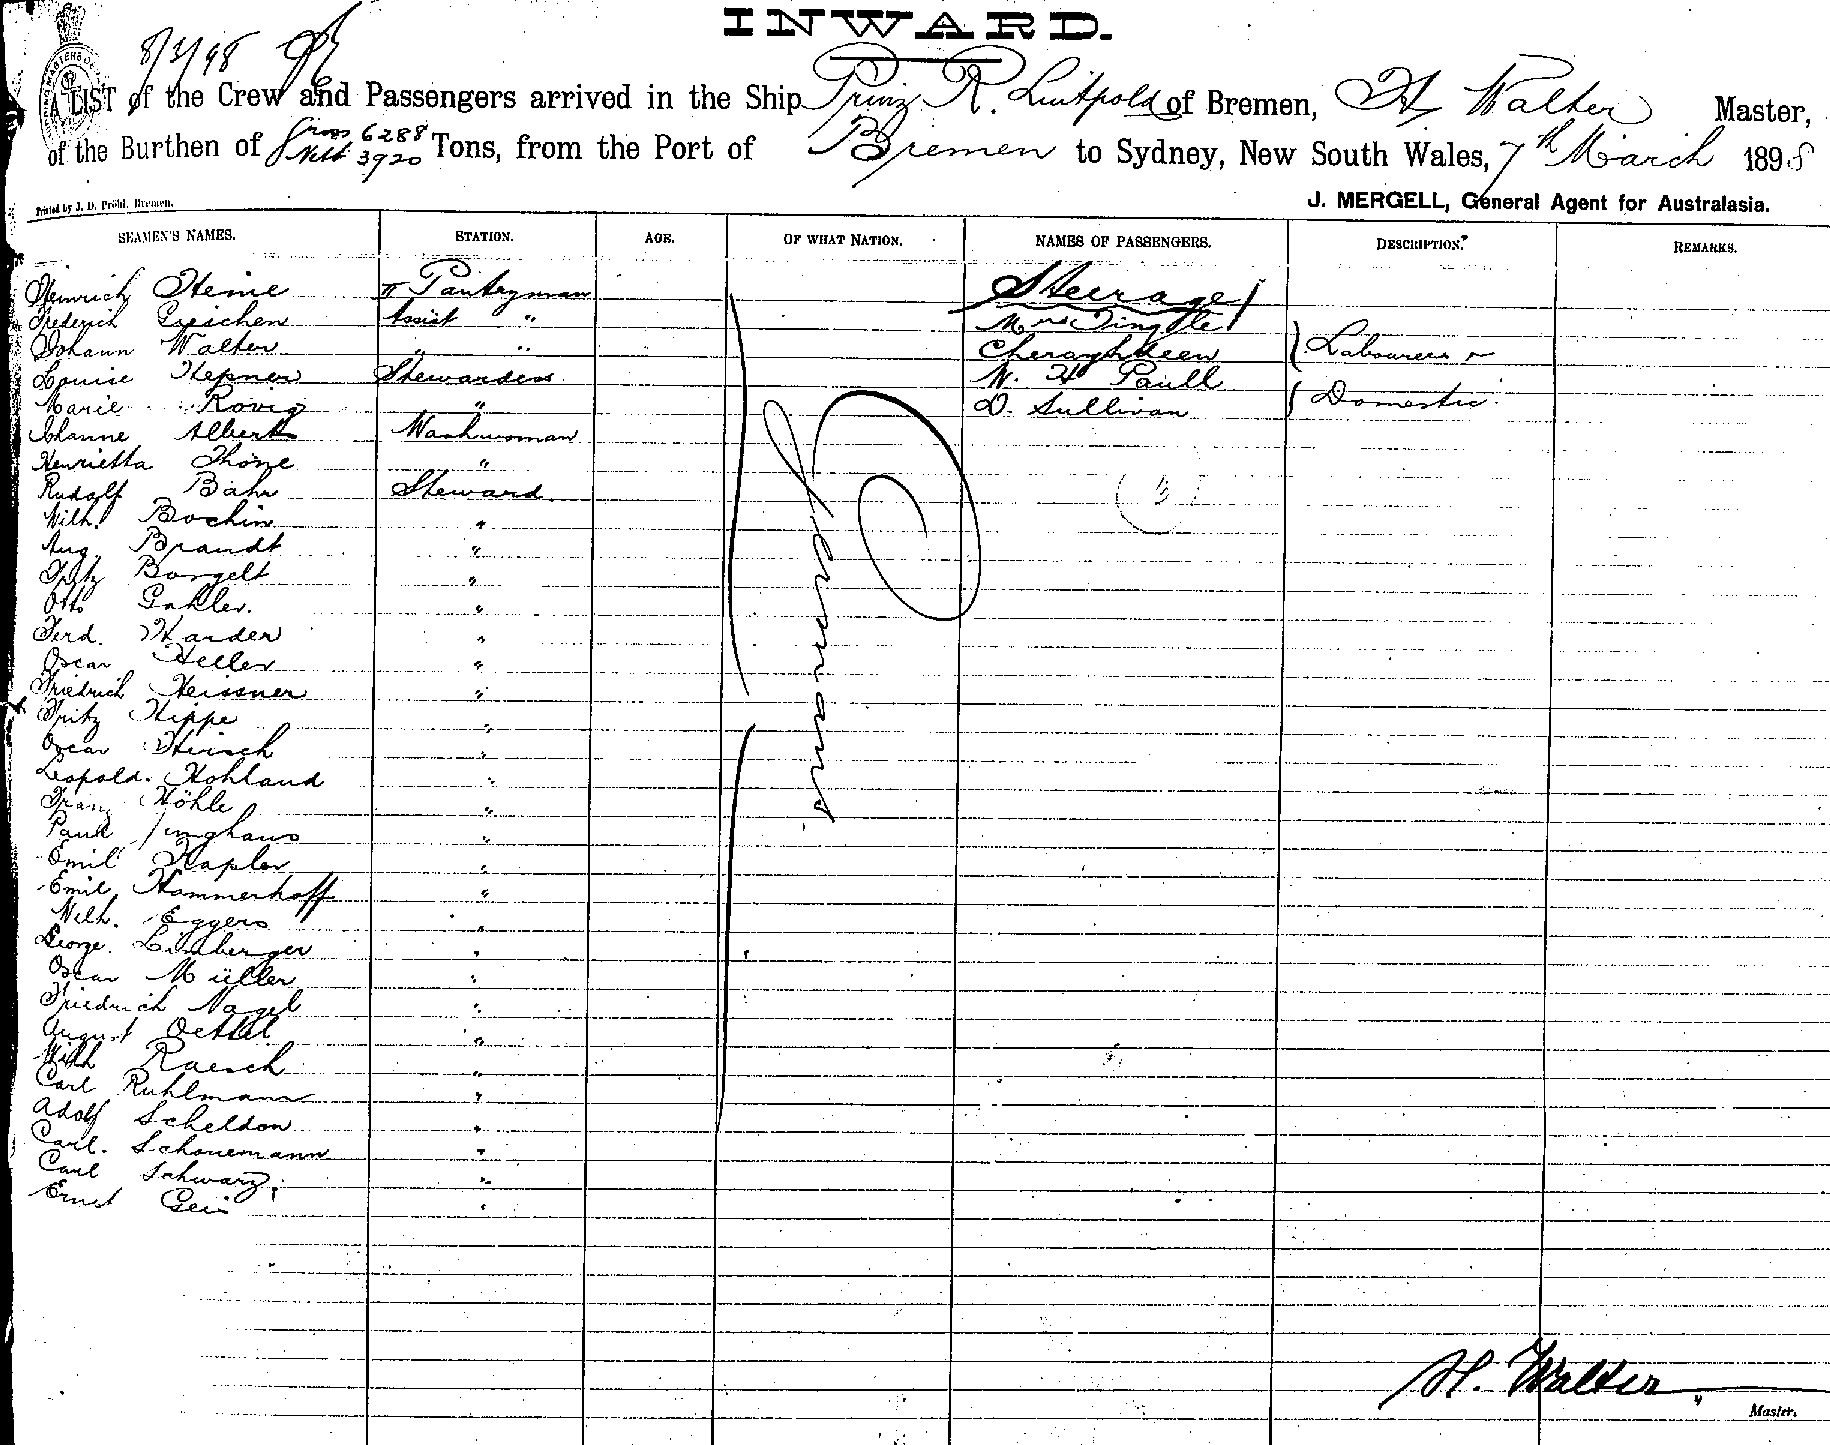 INWARD.
8/3/98
A LIST of the Crew and Passengers arrived in the Ship Prinz R. Luitpold of Bremen, H Walter Master,
of the Burthen of Gross 6288 Nett 3920 Tons, from the Port of Bremen to Sydney, New South Wales, 7th March 1898
Printed by J. D. Pröhl, Bremen.
J. MERGELL, General Agent for Australasia.
SEAMEN'S NAMES. STATION. AGE. OF WHAT NATION. NAMES OF PASSENGERS. DESCRIPTION. REMARKS.
Heinrich Heine II Pantryman Steerage
Frederich Assist " Mrs Tingle
Johann Walter " " Cheraghdeen Labourers
Louise Hepner Stewardess W. H Paull
Marie Rovig " D. Sullivan Domestic
Johanne Albert Washwoman
Henrietta Thöne "
Rudolf Bähr Steward
Wilh. Bochin "
Aug. Brandt "
Fritz Borgelt "
Otto Gahler. "
Ferd. Harder "
Oscar Heller "
Friedrich Heissner "
Fritz Hippe "
Oscar Hirsch "
Leopold. Hohland "
Franz Höhle "
Paul Junghans "
Emil Kapler "
Emil Hammerhoff "
Wilh. Eggers "
George. Limberger "
Oscar Müller "
Friedrich Nagel "
August Oettel "
Wilh Raesch "
Carl Ruhlmann "
Adolf Scheldon "
Carl. Schonemann "
Carl Schwarz "
Ernst Geis "
Germans
(3)
H. Walter
Master.